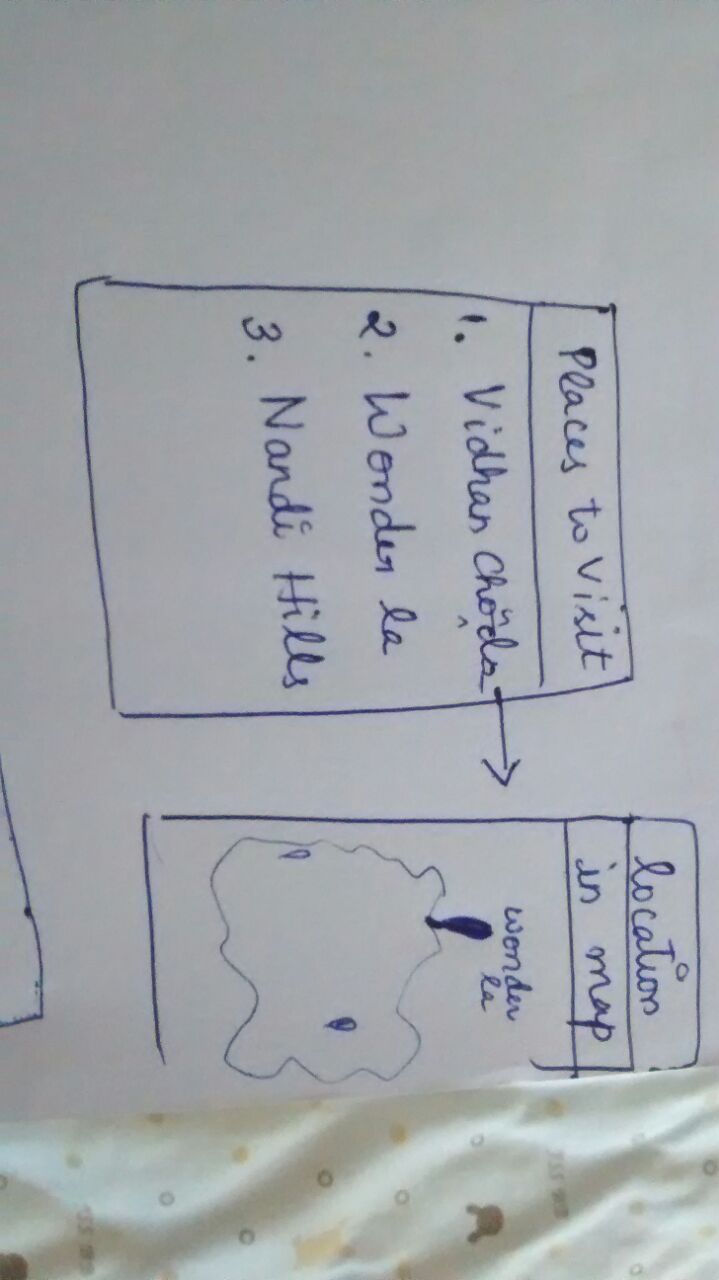 Places to Visit
1. Vidhan
2. Wonder la
3. Nandi Hills
location
in map
wonder
la